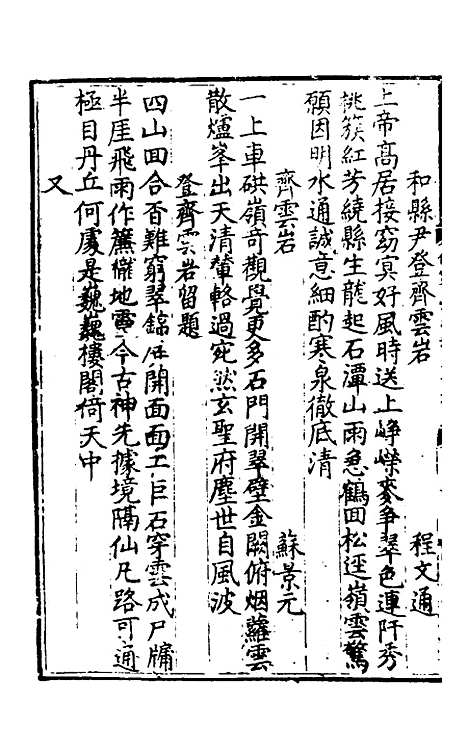 和縣尹登齊雲岩　程文通
上帝高居接窈㝠好風時送上崢嶸麥爭翠色連阡秀
桃簇紅芳繞縣生龍起石潭山雨急鶴回松逕嶺雲驚
願因明水通誠意細酌寒泉徹底清
齊雲岩　蘇景元
一上車硔嶺奇觀覺更多石門開翠壁金闕俯烟蘿雲
散爐峯出天清輦輅過宛然玄聖府塵世自風波
登齊雲岩留題
四山回合杳難窮翠錦屏開面面工巨石穿雲成戶牖
半厓飛雨作簾櫳地靈今古神先據境隔仙凡路可通
極目丹丘何處是巍巍樓閣倚天中
又